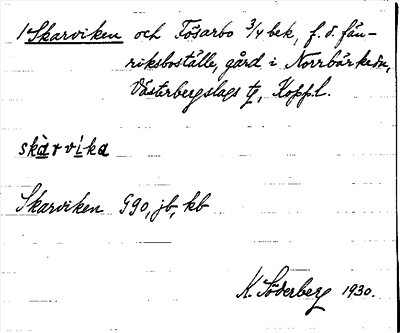 1 Skarviken och Fösarbo 3/4 bek, f. d. fän-
riksboställe, gård i Norrbärke sn,
Västerbergslags tg, Koppl.
skàrvika
Skarviken G90, jb, kb
K. Söderberg 1930.